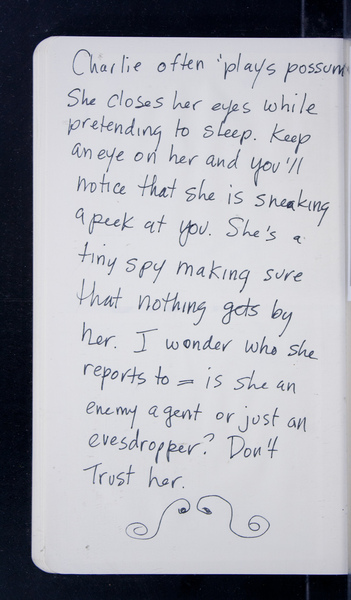 Charlie often 'plays possum
She closes her eyes while
pretending to sleep. Keep
an eye on her and you'll
notice that she is sneaking
a peek at you. She's a
tiny spy making sure
that nothing gets by
her. I wonder who she
reports to = is she an
enemy agent or just an
evesdropper? Don't
Trust her.